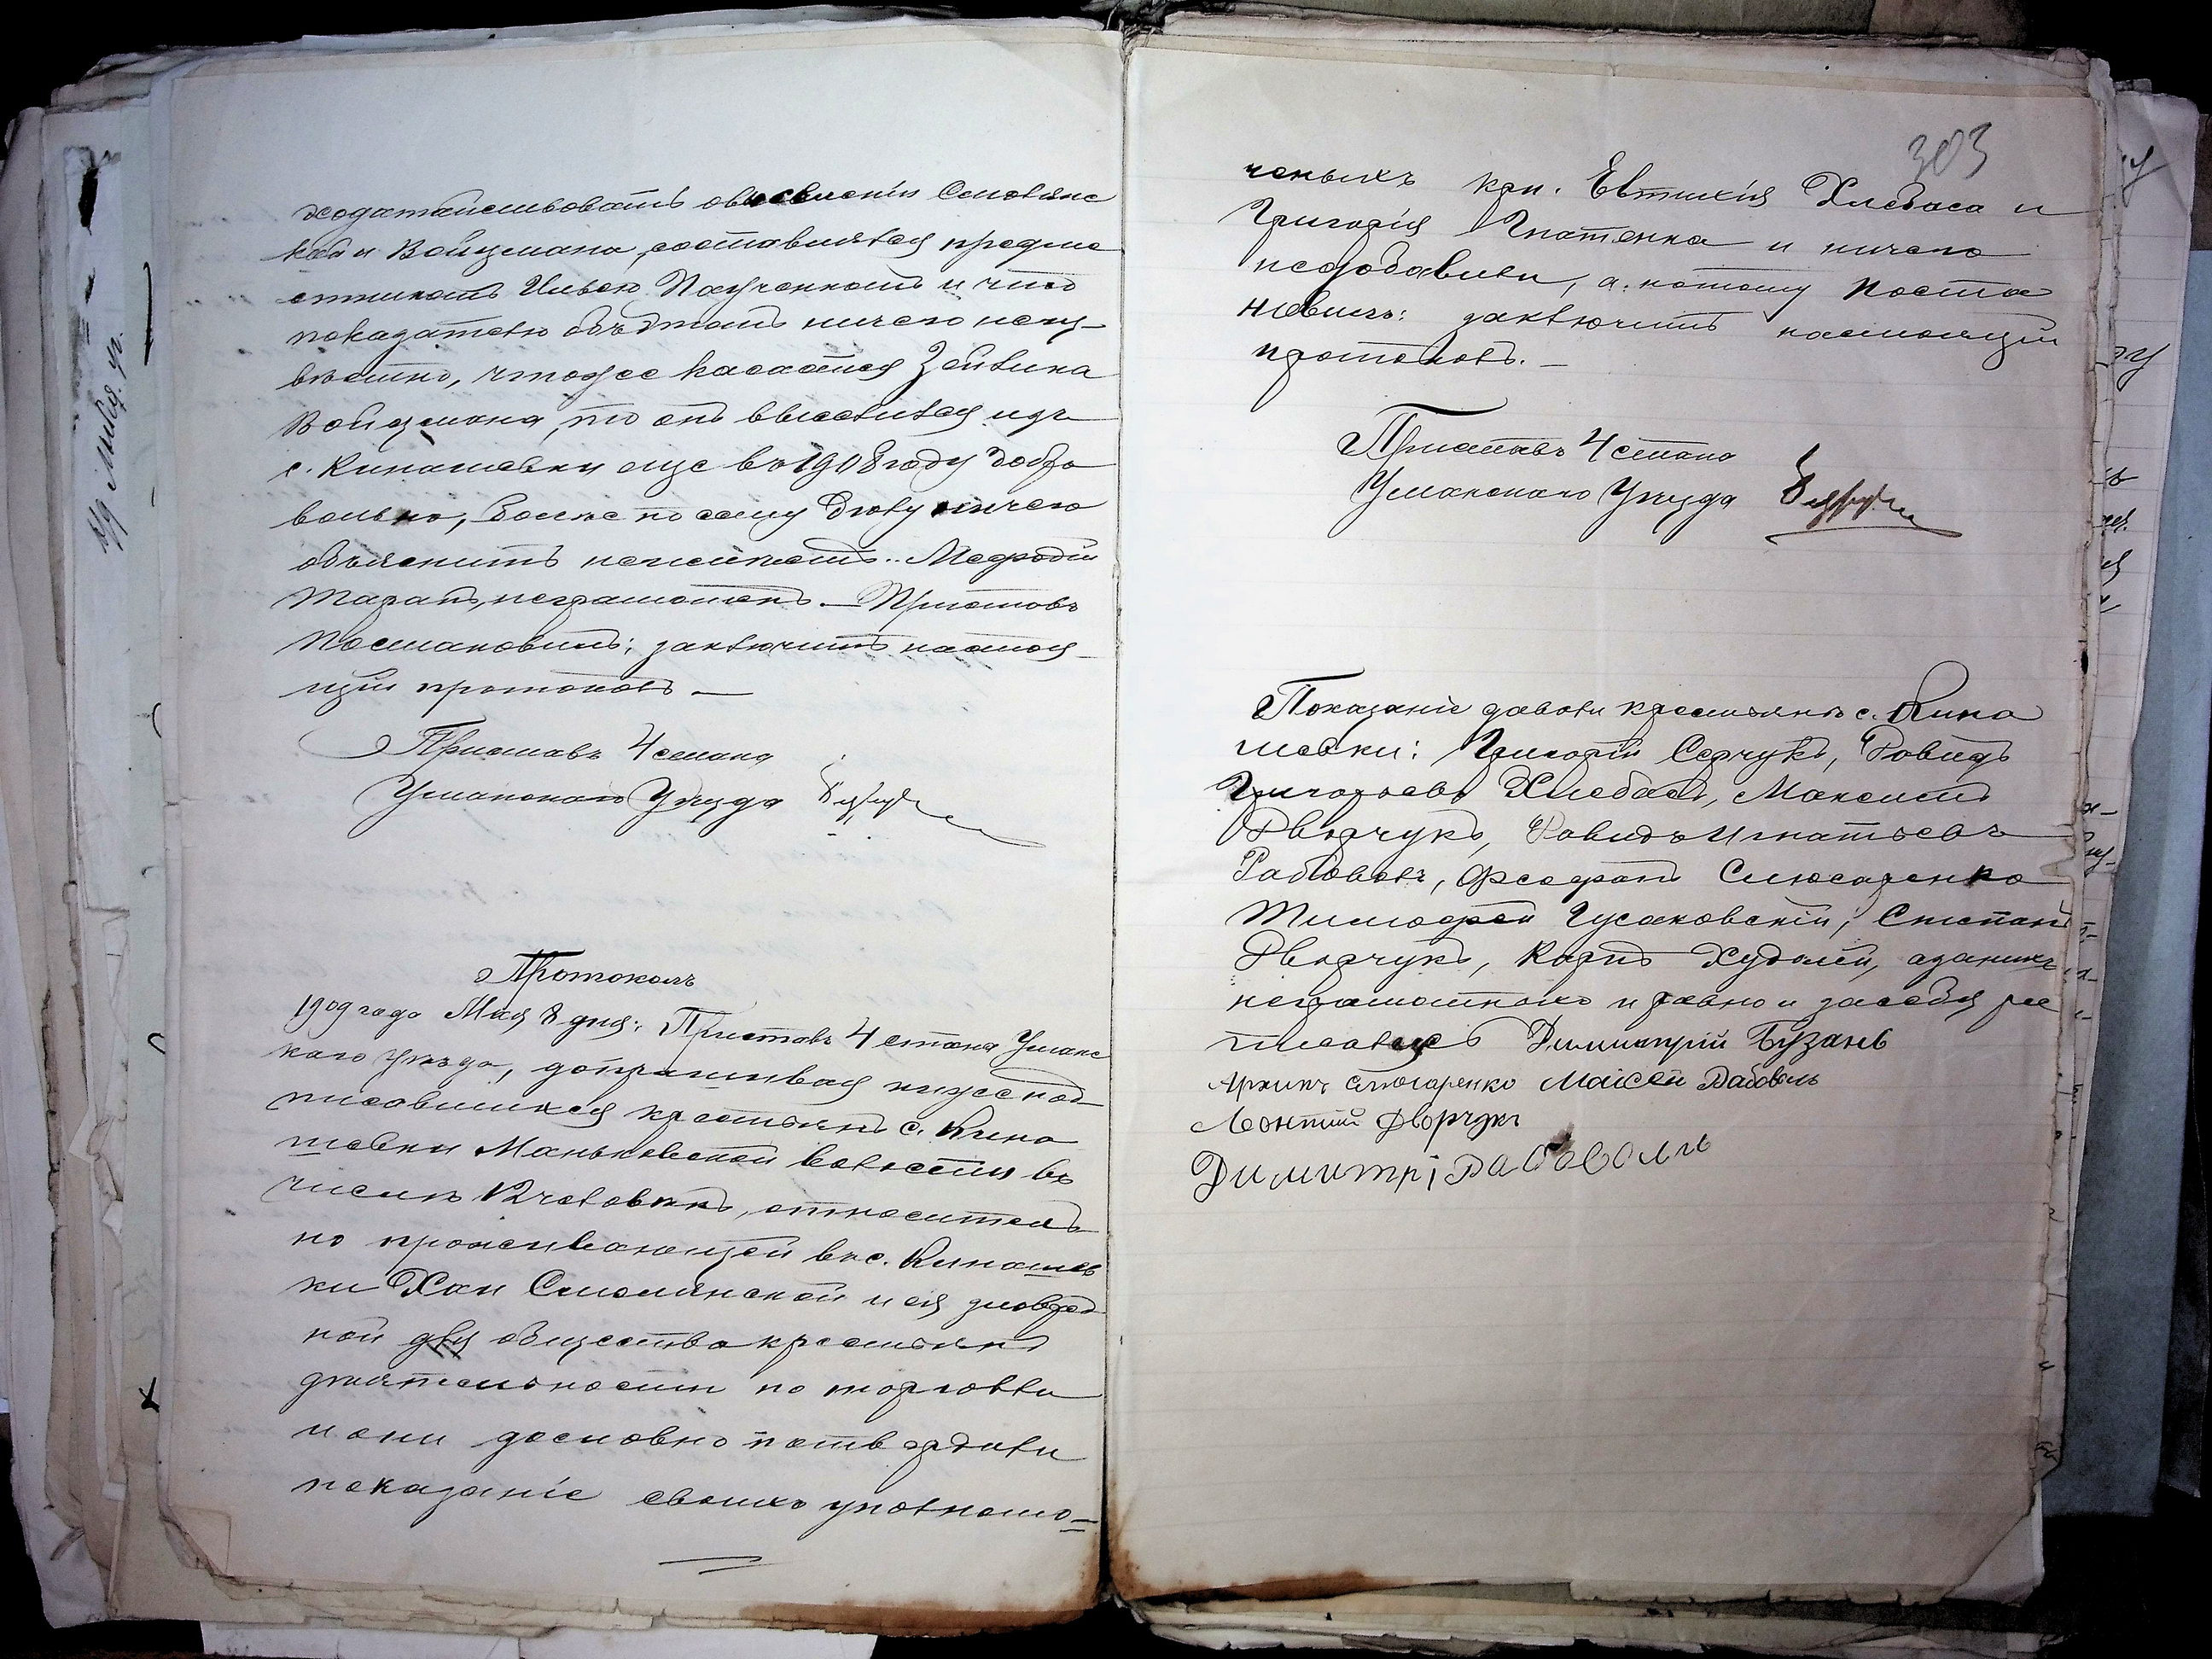 ходатайствовать о выселеніи Смолянс
кой и Войцмана, составлялся предме
стникомъ Ильею Паученкомъ и что
показателю объ этомъ ничего неиз-
вѣстно, чтоже касается Зейлика
Войцмана, то онъ выселился изъ
с. Кинашевки еще въ 1908 году добро
вольно, болѣе по сему дѣлу ничего
объяснить не можетъ. Мефодій
Таранъ, неграмотенъ. — Приставъ
Постановилъ: заключить настоя-
щій протоколъ —
Приставъ 4 стана
Уманскаго Уѣзда
Протоколъ
1909 года Мая 8 дня; Приставъ 4 стана Уманс
каго уѣзда, допрашивая нижепод
писавшихся крестьянъ с. Кина
шевки Маньковской волости въ
числѣ 12 человѣкъ, относитель
но проживающей въ с. Кинашев
ки Хаи Смолянской и ея зловред
ной для общества крестьянъ
дѣятельности по торговли
и они дословно потвердили
показаніе своихъ уполномо=
303
ченыхъ кр. Евтихія Хлебаса и
Григорія Игнатенка и ничего
недобавили, а потому Поста
новилъ: заключить настоящій
протоколъ. —
Приставъ 4 стана
Уманскаго Уѣзда
Показаніе давали крестьянъ с. Кина
шевки: Григорій Серчукъ, Давидъ
Григорьевъ Хлебасъ, Максимъ
Дворчукъ, Давидъ Игнатьевъ
Рабоволъ, Феофанъ Слюсаренко
Тимофей Гусаковскій, Степанъ
Дворчукъ, Карпъ Худолій, а за нихъ
неграмотныхъ и равно и засебя рос
писались Димитрій Бузань
Архипъ Слюсаренко Маісей Рабоволь
Леонтій Дворчукъ
Димитрі Рабоволь